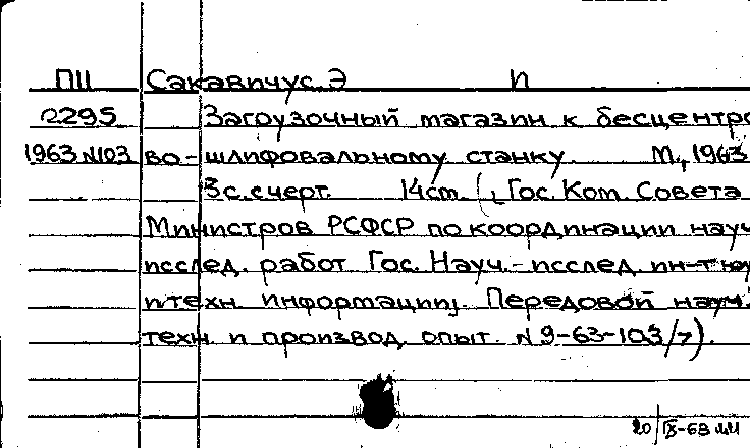 ПII Сакавичус, Э. П
2295 Загрузочный магазин к бесцентро
1963 №103 во-шлифовальному станку. М., 1963
3 с. с черт. 14 см. (Гос. Ком. Совета
Министров РСФСР по координации науч
исслед. работ Гос. Науч.-исслед. ин-т науч
и техн. информации. Передовой науч.
техн. и производ. опыт. № 9-63-103/7).
20/IX-63